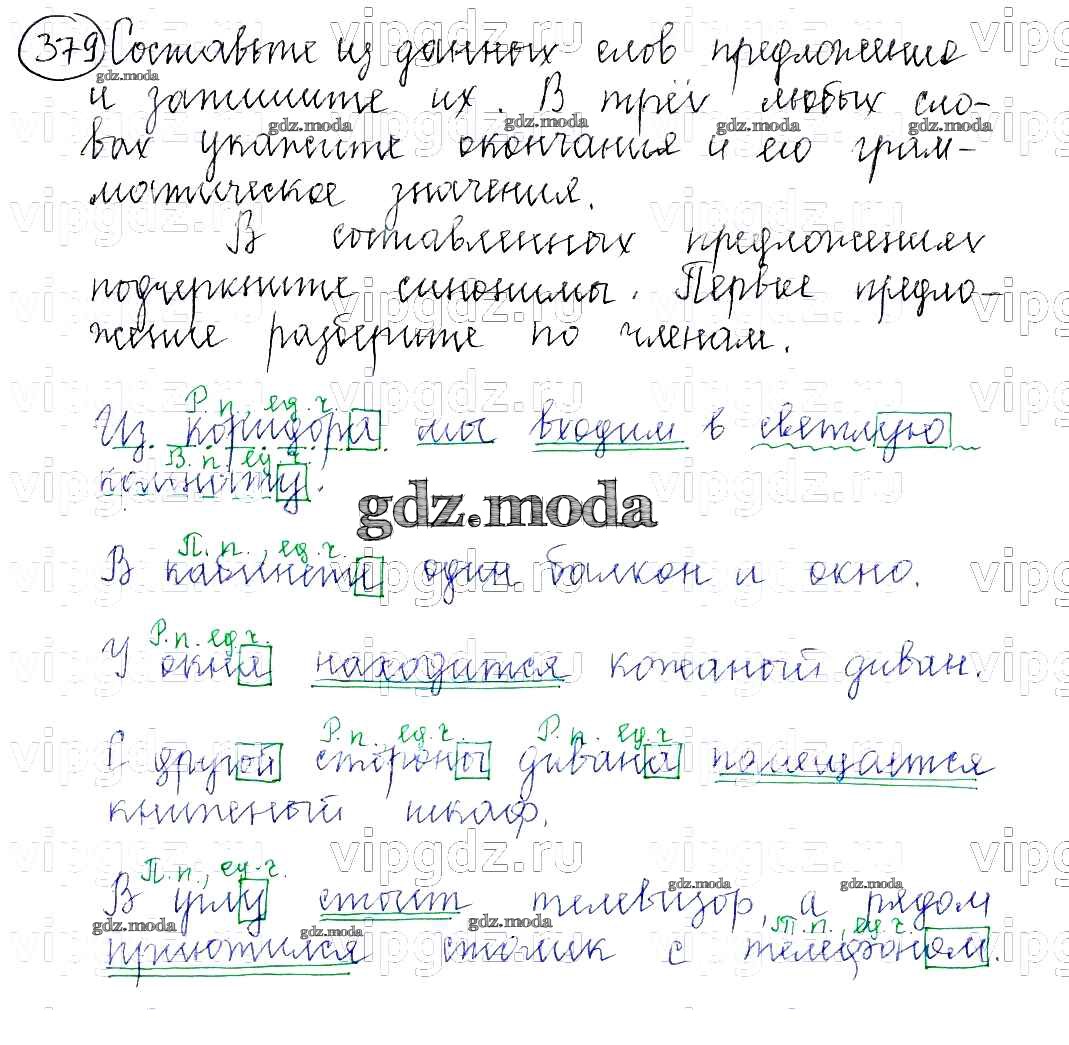 379 Составьте из данных слов предложение
и запишите их. В трёх любых сло-
вах укажите окончания и его грам-
матическое значения.
В составленных предложениях
подчеркните синонимы. Первое предло-
жение разберите по членам.
Р. п., ед. ч.
Из коридора мы входим в светлую
В. п., ед. ч.
комнату.
gdz.moda
П. п., ед. ч.
В кабинете один балкон и окно.
Р. п. ед. ч.
У окна находится кожаный диван.
Р. п. ед. ч. Р. п. ед. ч.
С другой стороны дивана помещается
книжный шкаф.
П. п., ед. ч.
В углу стоит телевизор, а рядом
Т. п., ед. ч.
приютился столик с телефоном.